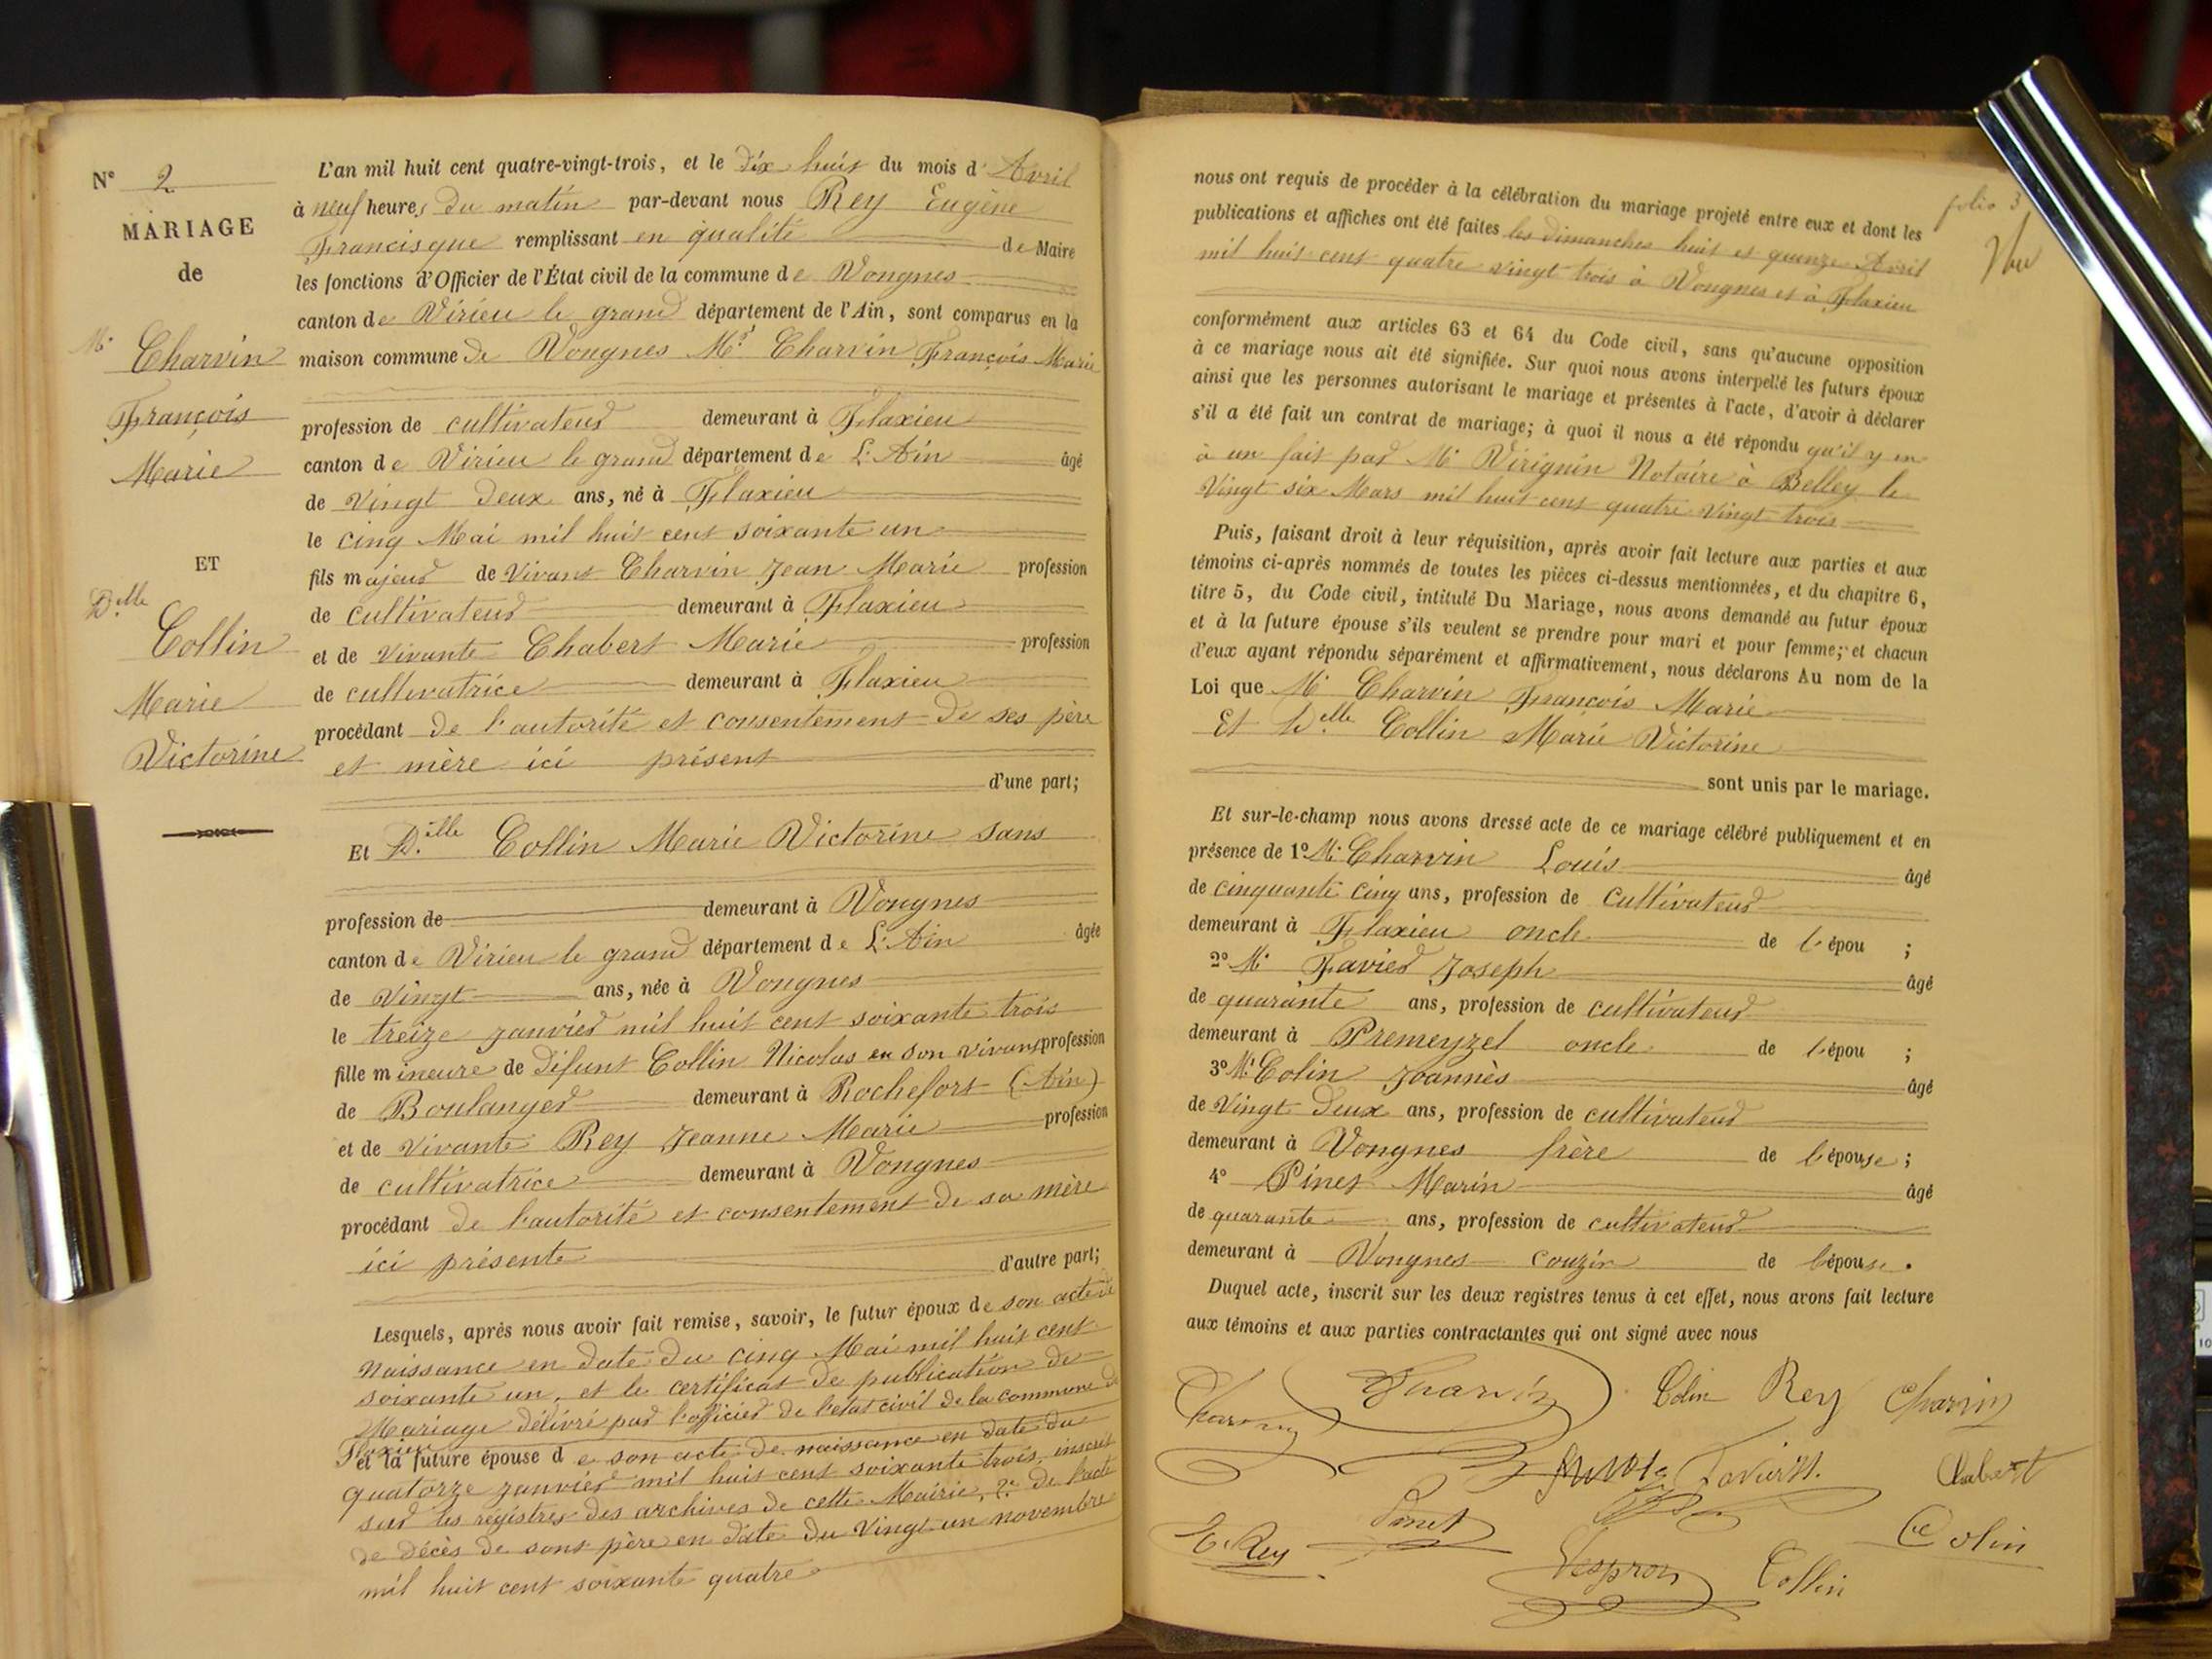 N° 2
MARIAGE
de
Mr Charvin
François
Marie
ET
Delle
Collin
Marie
Victorine
L'an mil huit cent quatre-vingt-trois, et le dix huit du mois d' Avril
à neuf heures du matin par-devant nous Rey Eugène
Francisque remplissant en qualité de Maire
les fonctions d'Officier de l'État civil de la commune de Vongnes
canton de Virieu le grand département de l'Ain, sont comparus en la
maison commune de Vongnes Mr Charvin François Marie
profession de cultivateur demeurant à Flaxieu
canton de Virieu le grand département de L'Ain âgé
de vingt deux ans, né à Flaxieu
le cinq Mai mil huit cent soixante un
fils majeur de vivant Charvin Jean Marie profession
de cultivateur demeurant à Flaxieu
et de vivante Chabert Marie profession
de cultivatrice demeurant à Flaxieu
procédant de l'autorité et consentement de ses père
et mère ici présent
d'une part;
Et Dille Collin Marie Victorine sans
profession de demeurant à Vongnes
canton de Virieu le grand département de L'Ain âgée
de vingt ans, née à Vongnes
le treize janvier mil huit cent soixante trois
fille mineure de défunt Collin Nicolas en son vivant profession
de Boulanger demeurant à Rochefort (Ain)
et de vivante Rey Jeanne Marie profession
de cultivatrice demeurant à Vongnes
procédant de l'autorité et consentement de sa mère
ici présente d'autre part;
Lesquels, après nous avoir fait remise, savoir, le futur époux de son acte de
Naissance en date du cinq Mai mil huit cent
soixante un, et le certificat de publication de
Mariage délivré par l'officier de l'état civil de la commune de
Flaxieu
et la future épouse de son acte de naissance en date du
quatorze janvier mil huit cent soixante trois, inscrit
sur les régistres des archives de cette Mairie, 2e de l'acte
de décès de sont père en date du vingt un novembre
mil huit cent soixante quatre
folio 3
nous ont requis de procéder à la célébration du mariage projeté entre eux et dont les
publications et affiches ont été faites les dimanches huit et quinze Avril
mil huit cent quatre vingt trois à Vongnes et à Flaxieu
conformément aux articles 63 et 64 du Code civil, sans qu'aucune opposition
à ce mariage nous ait été signifiée. Sur quoi nous avons interpellé les futurs époux
ainsi que les personnes autorisant le mariage et présentes à l'acte, d'avoir à déclarer
s'il a été fait un contrat de mariage; à quoi il nous a été répondu qu'il y en
a un fait par Mr Virignin Notaire à Belley le
Vingt six Mars mil huit cent quatre Vingt trois
Puis, faisant droit à leur réquisition, après avoir fait lecture aux parties et aux
témoins ci-après nommés de toutes les pièces ci-dessus mentionnées, et du chapitre 6,
titre 5, du Code civil, intitulé Du Mariage, nous avons demandé au futur époux
et à la future épouse s'ils veulent se prendre pour mari et pour femme; et chacun
d'eux ayant répondu séparément et affirmativement, nous déclarons Au nom de la
Loi que Mr Charvin François Marie
Et Delle Collin Marie Victorine
sont unis par le mariage.
Et sur-le-champ nous avons dressé acte de ce mariage célébré publiquement et en
présence de 1° Mr Charvin Louis âgé
de cinquante cinq ans, profession de cultivateur
demeurant à Flaxieu oncle de l'épou ;
2° Mr Favier Joseph âgé
de quarante ans, profession de cultivateur
demeurant à Premeyzel oncle de l'épou ;
3° Mr Colin Joannès âgé
de Vingt Deux ans, profession de cultivateur
demeurant à Vongnes frère de l'épouse ;
4° Pinet Marin âgé
de quarante ans, profession de cultivateur
demeurant à Vongnes couzin de l'épouse .
Duquel acte, inscrit sur les deux registres tenus à cet effet, nous avons fait lecture
aux témoins et aux parties contractantes qui ont signé avec nous
Charvin Colin Rey Charvin
Chabert
E. Rey Pinet Colin
Vespron Collin